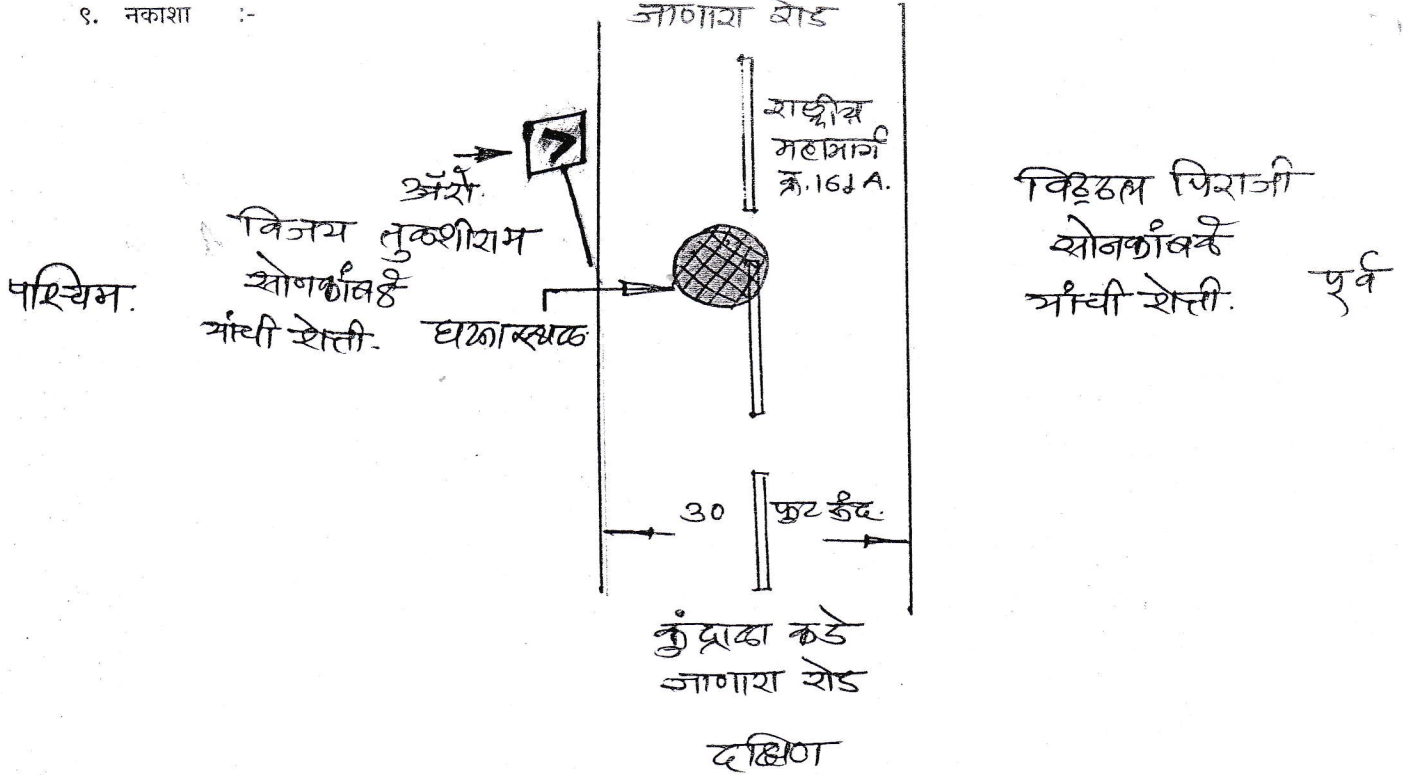 ९. नकाशा :-
जाणारा रोड
राष्ट्रीय
महामार्ग
क्र. 161 A.
अॅरो.
विजय तुळशीराम
सोनकांबळे
यांची शेती.
पश्चिम.
घटनास्थळ
विठ्ठल पिराजी
सोनकांबळे
यांची शेती.
पूर्व
30 फुट रुंद.
कुंद्राळा कडे
जाणारा रोड
दक्षिण